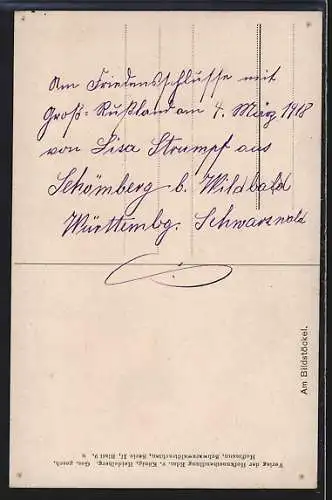 Am Friedensschlusse mit
Groß=Rußland am 4. März 1918
von Lisa Strumpf aus
Schömberg b. Wildbald
Württembg. Schwarzwald
Am Bildstöckel.
Verlag der Hofkunsthandlung Edm. v. König, Heidelberg. Ges. gesch.
Hoffmann, Schwarzwaldtrachten, Serie II, Blatt 9.